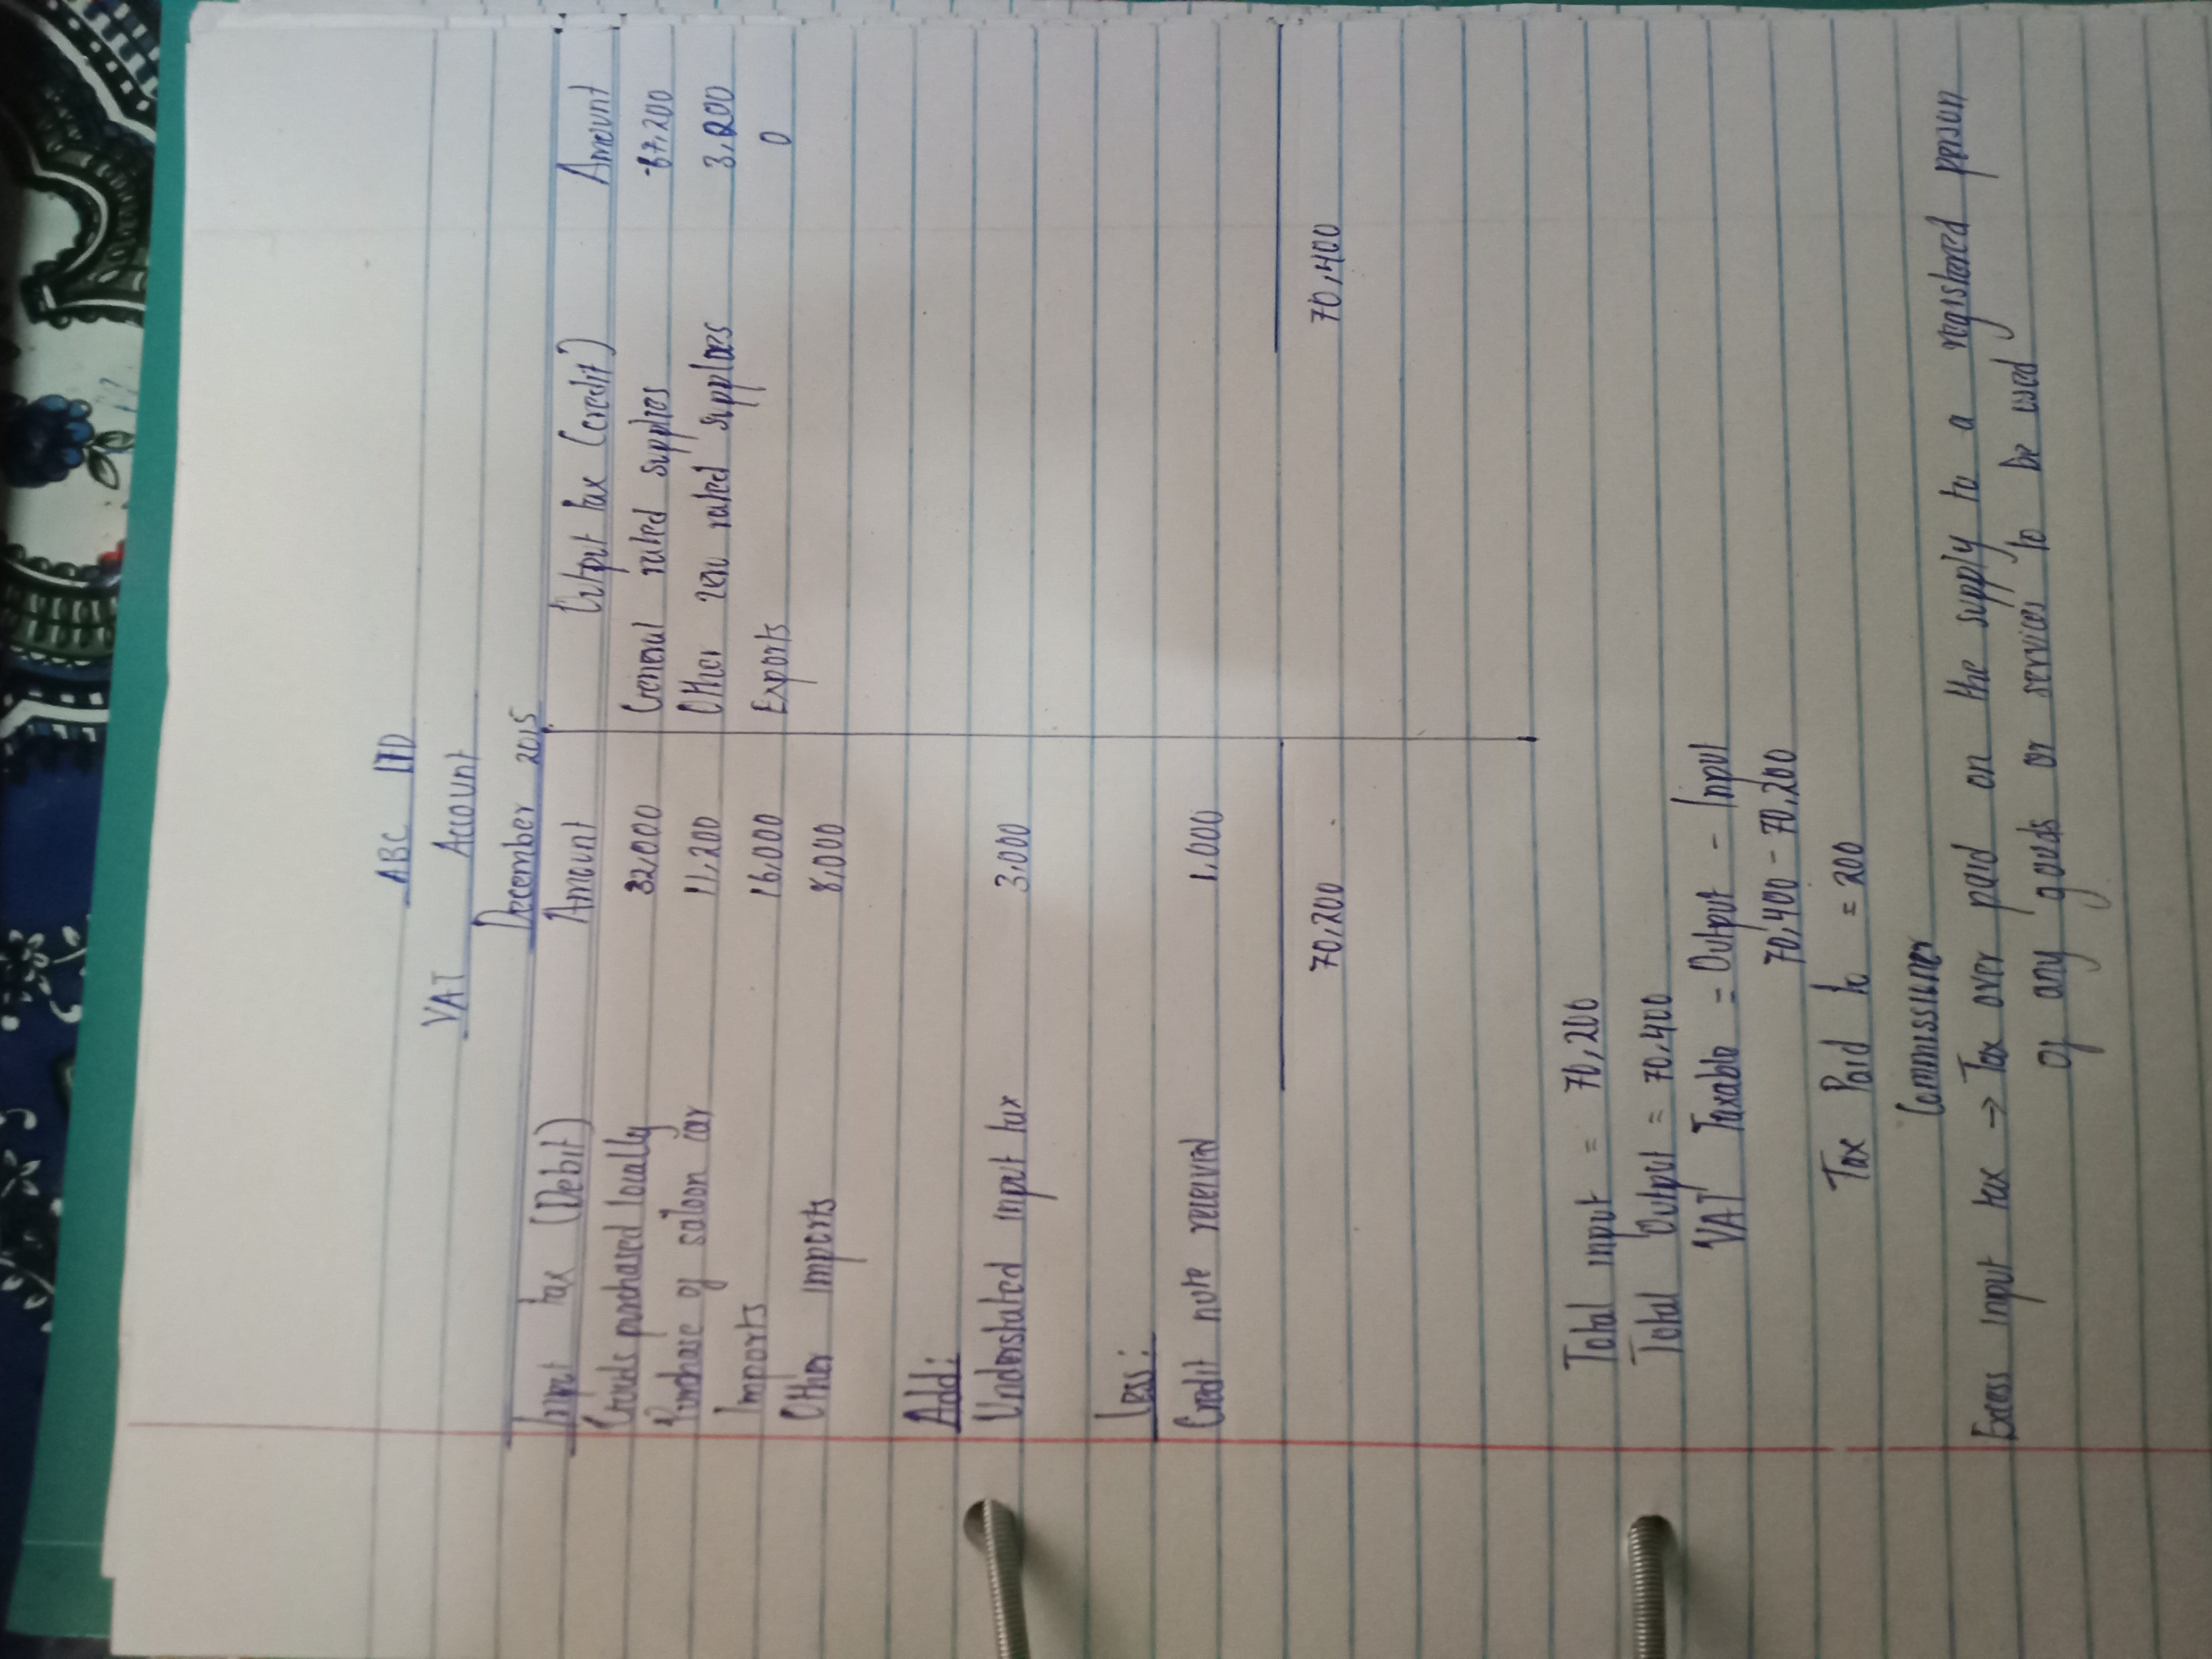 ABC LTD
VAT Account
December 2015
Input tax (Debit) Amount Output tax (credit) Amount
Goods purchased locally 32,000 General rated supplies 67,200
Purchase of saloon car 11,200 Other zero rated supplies 3,200
Imports 16,000 Exports 0
Other imports 8,000
Add:
Understated input tax 3,000
Less:
Credit note received 1,000
70,200 70,400
Total input = 70,200
Total Output = 70,400
VAT Taxable = Output - Input
70,400 - 70,200
Tax Paid to = 200
Commissioner
Excess input tax → Tax over paid on the supply to a registered person
of any goods or services to be used